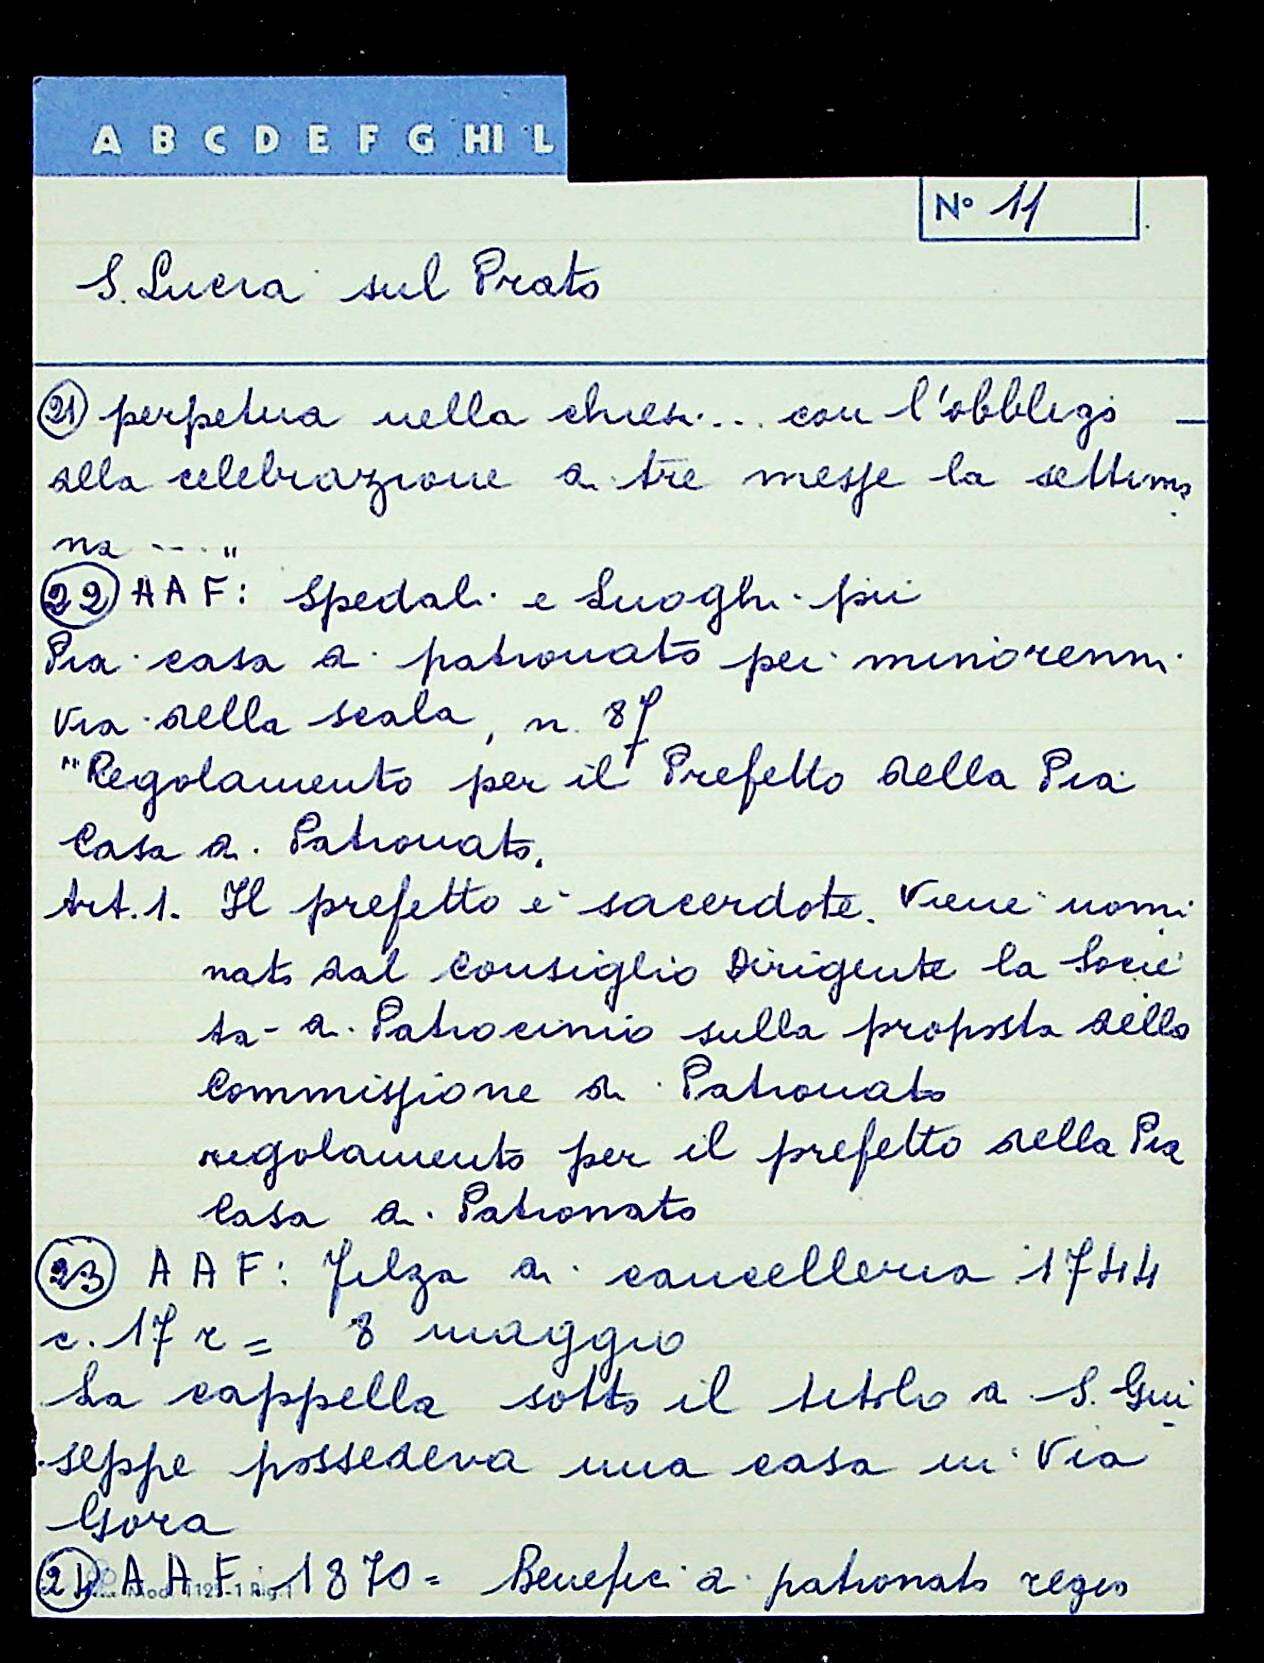 A B C D E F G HI L
N° 11
S. Lucia sul Prato
(21) perpetua nella chiesa... con l'obbligo -
della celebrazione di tre messe la settima
na ..."
(22) AAF: Spedali e Luoghi pii
Pia casa di patronato pei minorenni
Via della Scala, n. 87
"Regolamento per il Prefetto della Pia
Casa di Patronato.
Art. 1. Il prefetto è sacerdote. Viene nomi
nato dal Consiglio Dirigente la Socie
tà di Patrocinio sulla proposta della
Commissione di Patronato
regolamento per il prefetto della Pia
Casa di Patronato
(23) AAF: Filza di cancelleria 1744
c. 17 r = 8 maggio
La cappella sotto il titolo di S. Giu
seppe possedeva una casa in Via
Gora
(24) AAF. 1870 = Benefici di patronato regio
Mod. 1125-1 Rig. 1